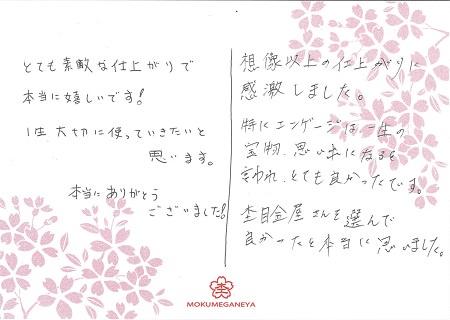 とても素敵な仕上がりで
本当に嬉しいです!
1生大切に使っていきたいと
思います。
本当にありがとう
ございました!
想像以上の仕上がりに
感激しました。
特にエンゲージは一生の
宝物、思い出になると
言われ、とても良かったです。
杢目金屋さんを選んで
良かったと本当に思いました。
MOKUMEGANEYA